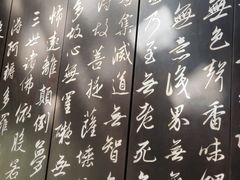 無色聲香味觸
無意識界無
乃至無老死
集滅道無智
故菩提薩埵
多故心無罣
怖遠離顛倒夢
三世諸佛依
得阿耨多羅